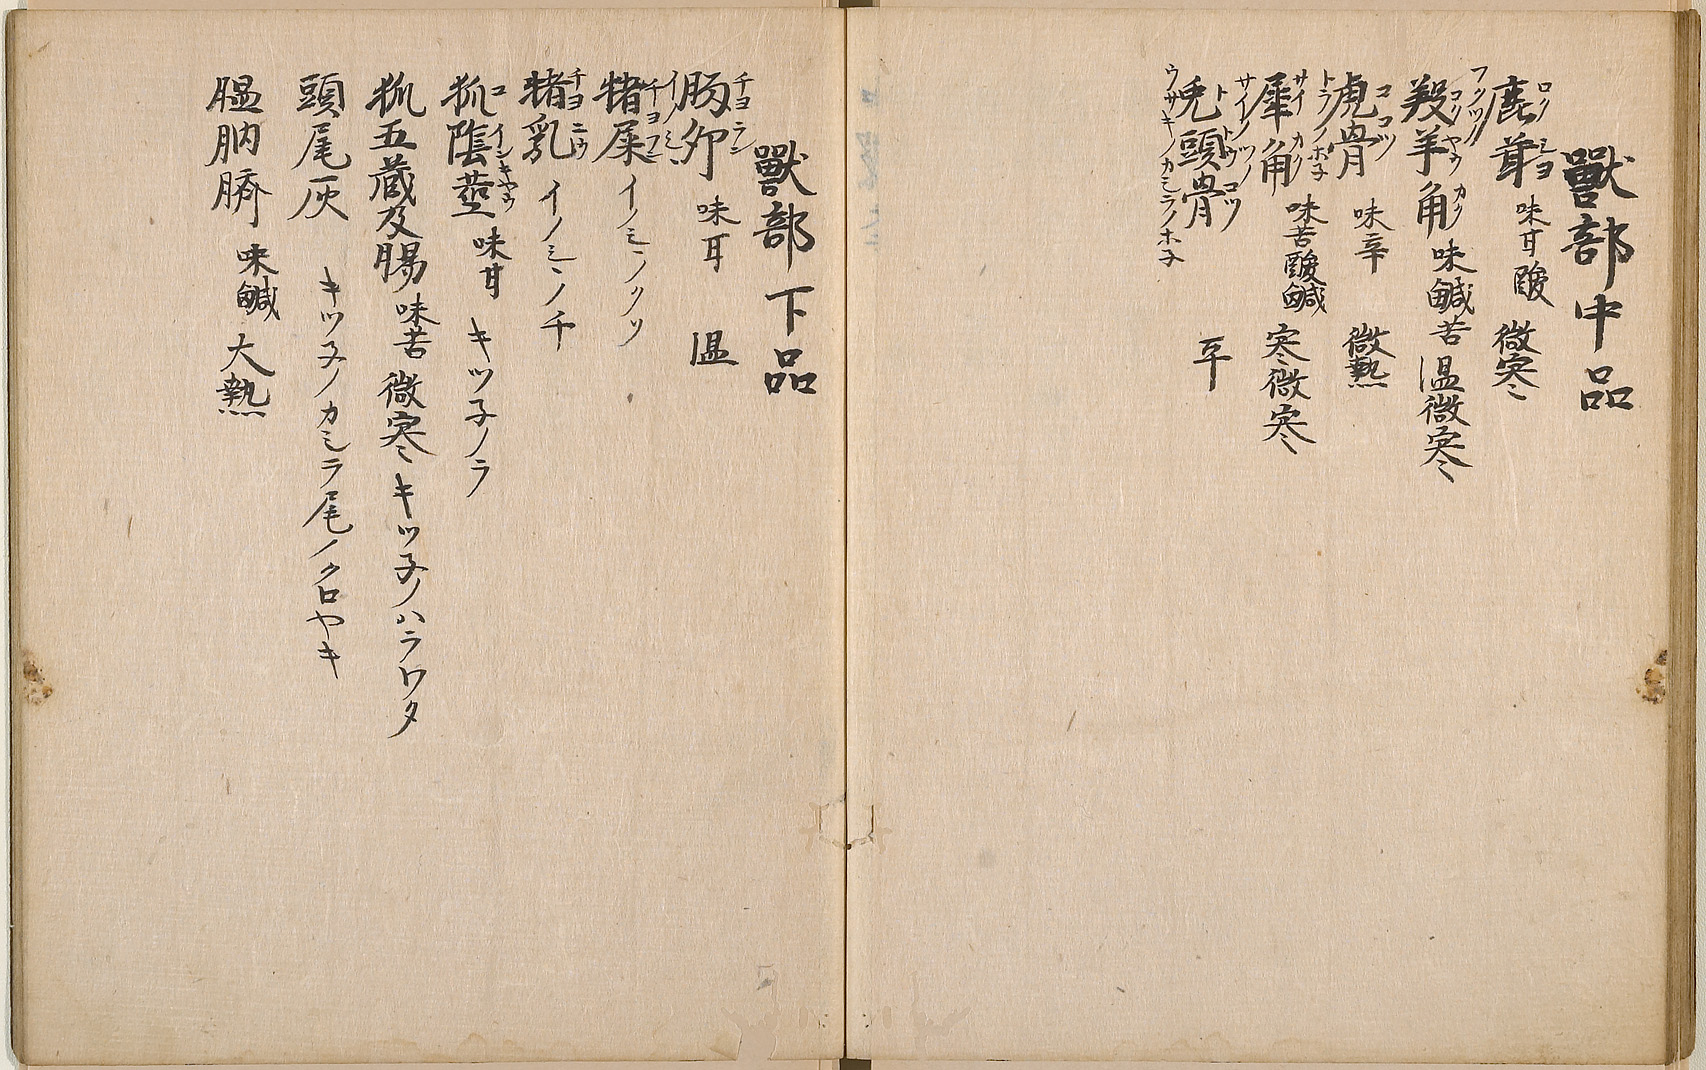 獸部中品
鹿茸 ロクシヨ 味甘酸 微寒
フクツノ
羖羊角 コヤウカク 味鹹苦 温微寒
虎骨 ココツ 味辛 微熱
トラノホ子
犀角 サイカク 味苦酸鹹 寒微寒
サイノツノ
兎頭骨 トトウコツ 平
ウサキノカシラノホ子
獸部下品
豚卵 チヨラン 味甘 温
猪屎 イノシシノクソ
猪乳 チヨニウ イノシシノチ
狐陰莖 コインキヤウ 味甘 キツ子ノラ
狐五蔵及腸 味苦 微寒 キツ子ノハラワタ
頭尾灰 キツ子ノカシラ尾ノクロヤキ
膃肭臍 味鹹 大熱